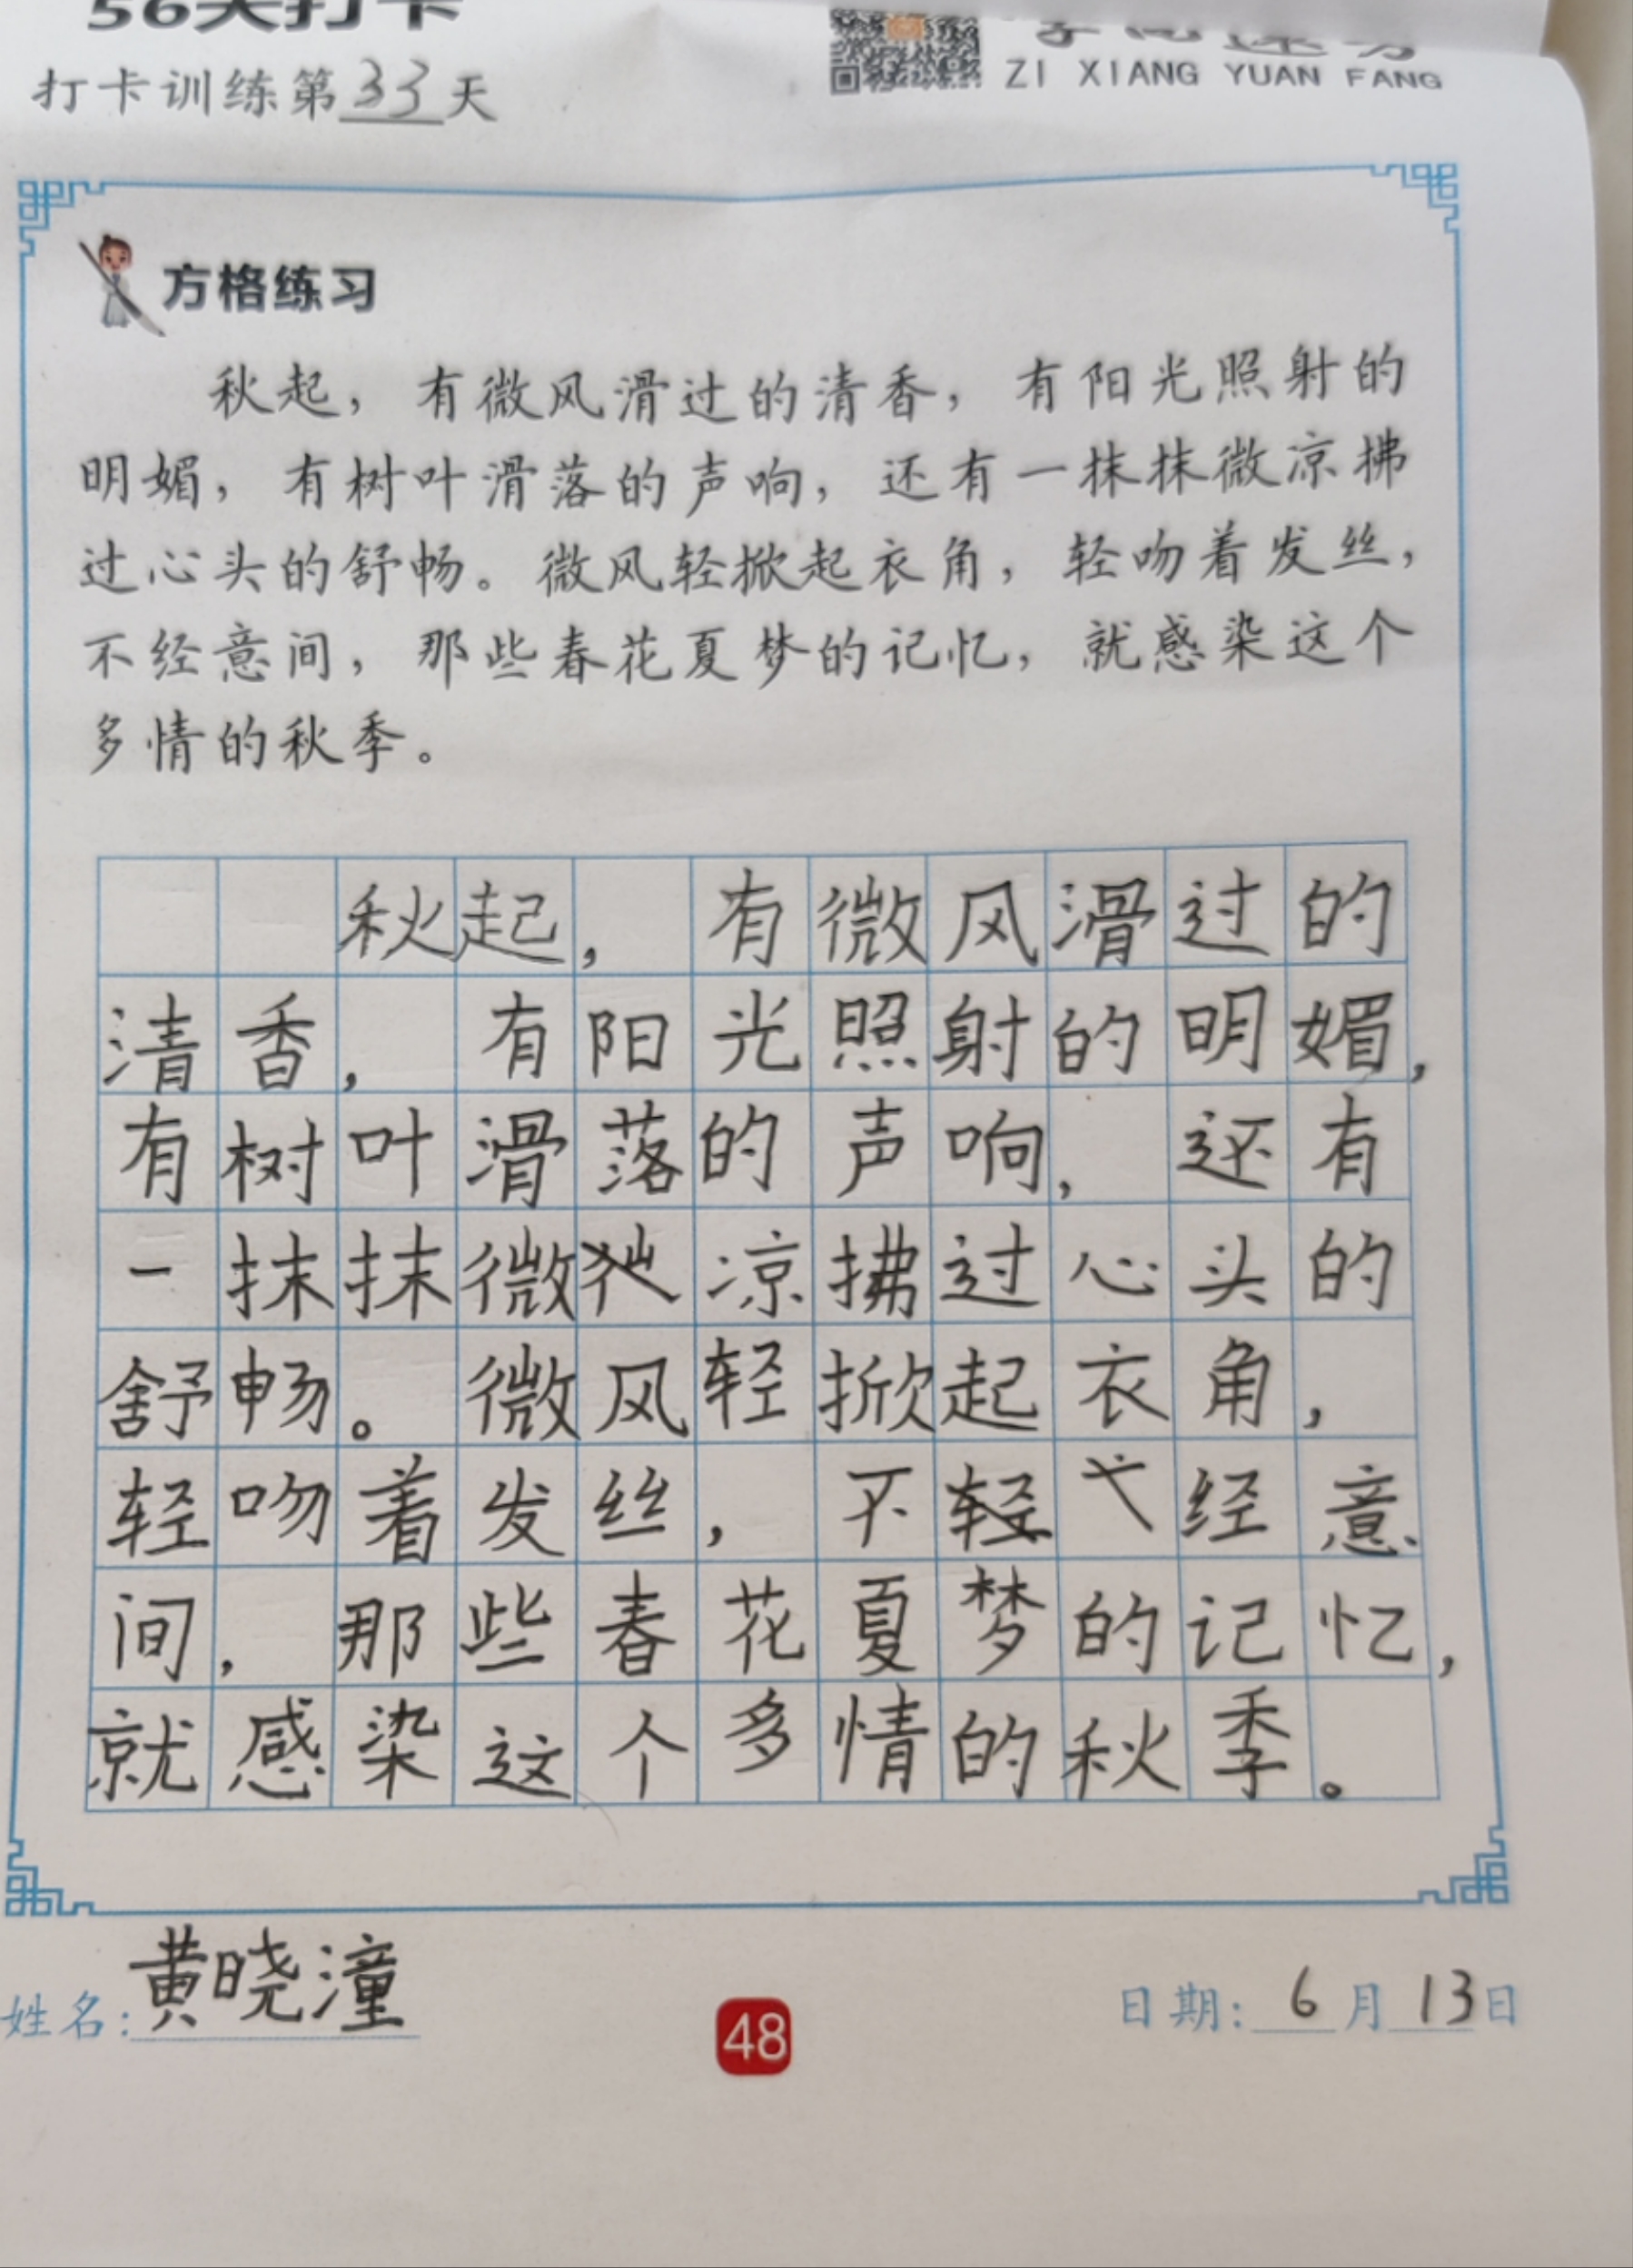 56天打卡
打卡训练第33天
ZI XIANG YUAN FANG
方格练习
秋起，有微风滑过的清香，有阳光照射的
明媚，有树叶滑落的声响，还有一抹抹微凉拂
过心头的舒畅。微风轻掀起衣角，轻吻着发丝，
不经意间，那些春花夏梦的记忆，就感染这个
多情的秋季。
秋起，有微风滑过的
清香，有阳光照射的明媚，
有树叶滑落的声响，还有
一抹抹微凉拂过心头的
舒畅。微风轻掀起衣角，
轻吻着发丝，不轻经意
间，那些春花夏梦的记忆，
就感染这个多情的秋季。
姓名：黄晓潼
48
日期：6月13日